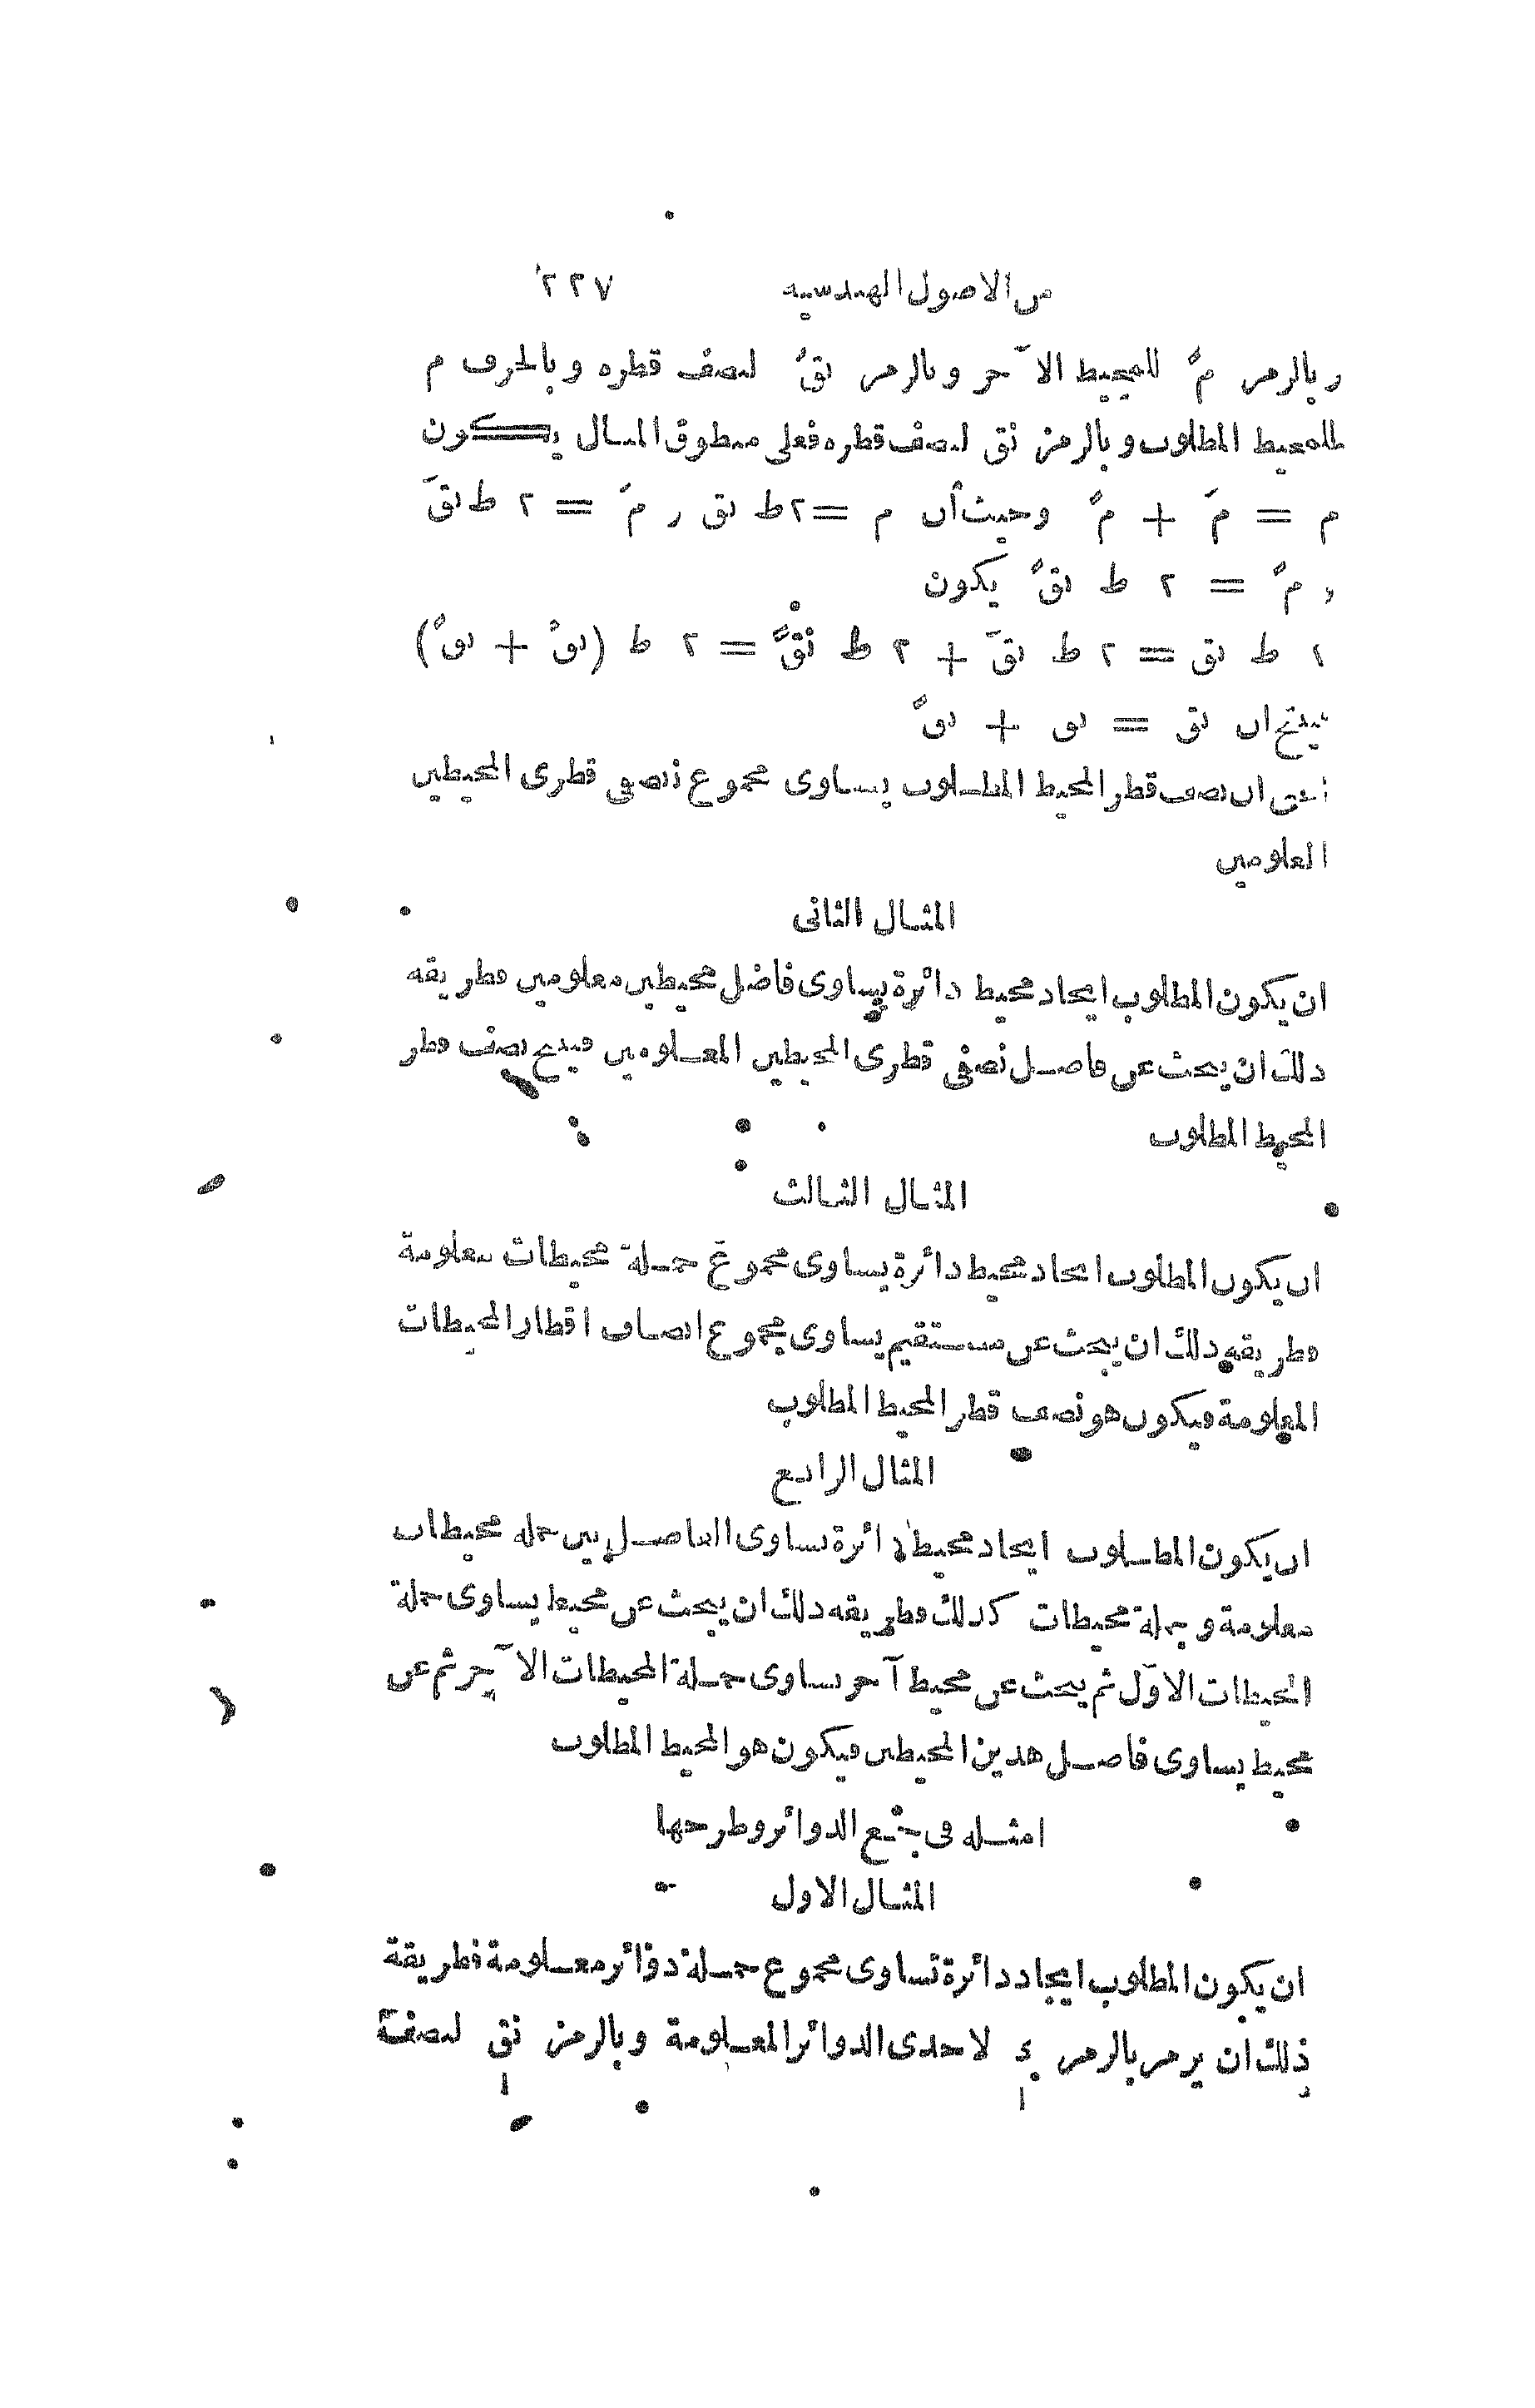 من الاصول الهندسيه ٢٢٧
وبالرمز مً للمحيط الآخر وبالرمز نقً لنصف قطره وبالحرف م
للمحيط المطلوب وبالرمز نق لنصف قطره فعلى منطوق المثال يكون
م = مَ + مً وحيث أن م = ٢ ط نق ر مَ = ٢ ط نقَ
و مً = ٢ ط نقً يكون
٢ ط نق = ٢ ط نقَ + ٢ ط نقً = ٢ ط (نقَ + نقً)
فينتج ان نق = نق + نقً
أعنى ان نصف قطر المحيط المطلوب يساوى مجموع نصفى قطرى المحيطين
المعلومين
المثال الثانى
ان يكون المطلوب ايجاد محيط دائرة يساوى فاضل محيطين معلومين وطريقه
ذلك ان يبحث عن فاضل نصفى قطرى المحيطين المعلومين فينتج نصف قطر
المحيط المطلوب
المثال الثالث
ان يكون المطلوب ايجاد محيط دائرة يساوى مجموع جملة محيطات معلومة
وطريقه ذلك ان يبحث عن مستقيم يساوى مجموع انصاف اقطار المحيطات
المعلومة فيكون هو نصف قطر المحيط المطلوب
المثال الرابع
ان يكون المطلوب ايجاد محيط دائرة تساوى الفاضل بين جملة محيطات
معلومة وجملة محيطات كذلك وطريقه ذلك ان يبحث عن محيط يساوى جملة
المحيطات الاوّل ثم يبحث عن محيط آخر يساوى جملة المحيطات الآخر ثم عن
محيط يساوى فاضل هذين المحيطين فيكون هو المحيط المطلوب
امثله فى جمع الدوائر وطرحها
المثال الاول
ان يكون المطلوب ايجاد دائرة تساوى مجموع جملة دوائر معلومة فطريقة
ذلك ان يرمز بالرمز ء لاحدى الدوائر المعلومة وبالرمز نق لنصف